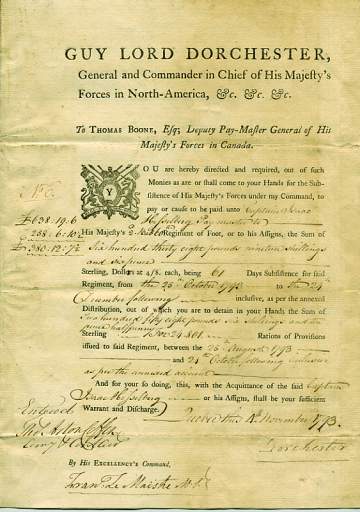 GUY LORD DORCHESTER,
General and Commander in Chief of His Majesty's
Forces in North-America, &c. &c. &c.
To THOMAS BOONE, Esq; Deputy Pay-Master General of His
Majesty's Forces in Canada.
YOU are hereby directed and required, out of such
Monies as are or shall come to your Hands for the Sub-
sistence of His Majesty's Forces under my Command, to
pay or cause to be paid unto Captain Isaac
Pay master to
His Majesty's Regiment of Foot, or to his Assigns, the Sum of
Six hundred thirty eight pounds nineteen shillings
and six pence
£638.19.6
258.6.10½
£380.12.7½
Sterling, Dollars at 4/8. each, being 61 Days Subsistence for said
Regiment, from the 25th October 1793 to the 24th
December following inclusive, as per the annexed
Distribution, out of which you are to detain in your Hands the Sum of
Two hundred fifty eight pounds six Shillings and ten
pence halfpenny
Sterling for 24801 Rations of Provisions
issued to said Regiment, between the 25th August 1793
and 24th October following inclusive
as per the annexed account
And for your so doing, this, with the Acquittance of the said Captain
Isaac or his Assigns, shall be your sufficient
Warrant and Discharge.
Quebec the November 1793.
Entered
Dorchester
By His EXCELLENCY'S Command,